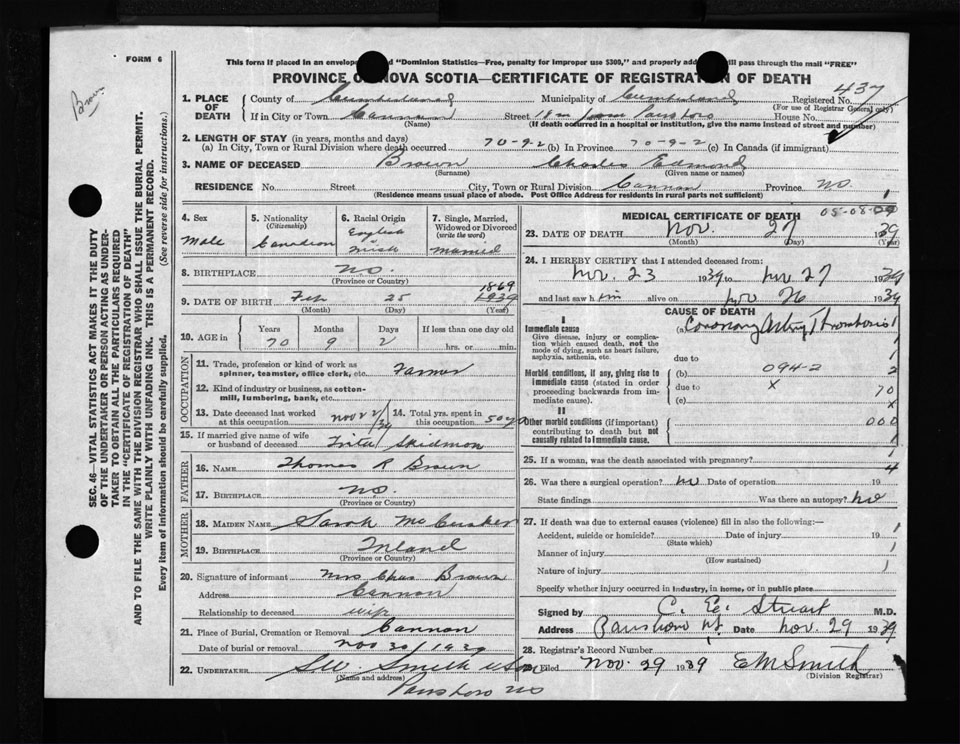 FORM 6
This form if placed in an envelope "Dominion Statistics—Free, penalty for improper use $300," and properly will pass through the mail "FREE"
PROVINCE OF NOVA SCOTIA—CERTIFICATE OF REGISTRATION OF DEATH
Brown
1. PLACE OF DEATH
County of Cumberland Municipality of Cumberland Registered No. 437
(For use of Registrar General only)
If in City or Town Cannan Street from Parrsboro House No.
(Name) (If death occurred in a hospital or institution, give the name instead of street and number)
2. LENGTH OF STAY (in years, months and days)
(a) In City, Town or Rural Division where death occurred 70-9-2 (b) In Province 70-9-2 (c) In Canada (if immigrant)
3. NAME OF DECEASED Brown Charles Edmond
(Surname) (Given name or names)
RESIDENCE No. Street City, Town or Rural Division Cannon Province NS.
(Residence means usual place of abode. Post Office Address for residents in rural parts not sufficient)
4. Sex Male
5. Nationality (Citizenship) Canadian
6. Racial Origin English Irish
7. Single, Married, Widowed or Divorced (write the word) Married
8. BIRTHPLACE NS.
(Province or Country)
9. DATE OF BIRTH Feb 25 1869 1939
(Month) (Day) (Year)
10. AGE in Years 70 Months 9 Days 2 If less than one day old hrs. or min.
OCCUPATION
11. Trade, profession or kind of work as spinner, teamster, office clerk, etc. Farmer
12. Kind of industry or business, as cotton-mill, lumbering, bank, etc.
13. Date deceased last worked at this occupation Nov 22/39 14. Total yrs. spent in this occupation 50 yrs
15. If married give name of wife or husband of deceased Skidmon
FATHER
16. NAME Thomas R Brown
17. BIRTHPLACE NS.
MOTHER
18. MAIDEN NAME Sarah McCusker
19. BIRTHPLACE Ireland
(Province or Country)
20. Signature of informant Mrs Chas Brown
Address Cannon
Relationship to deceased wife
21. Place of Burial, Cremation or Removal Cannon
Date of burial or removal Nov 30/1939
22. UNDERTAKER S.W. Smith & Son
(Name and address)
Parrsboro NS
MEDICAL CERTIFICATE OF DEATH
05-08-09
23. DATE OF DEATH Nov. 27 1939
(Month) (Day) (Year)
24. I HEREBY CERTIFY that I attended deceased from:
Nov. 23 1939 to Nov 27 1939
and last saw him alive on Nov 26 1939
CAUSE OF DEATH
I
Immediate cause (a) Coronary Artery Thrombosis 1
Give disease, injury or complication which caused death, not the mode of dying, such as heart failure, asphyxia, asthenia, etc.
due to
094-2
Morbid conditions, if any, giving rise to immediate cause (stated in order proceeding backwards from immediate cause).
due to X 70
(c)
II
Other morbid conditions (if important) contributing to death but not causally related to immediate cause. 000
25. If a woman, was the death associated with pregnancy?
26. Was there a surgical operation? No Date of operation 19
State findings Was there an autopsy? No
27. If death was due to external causes (violence) fill in also the following:—
Accident, suicide or homicide? Date of injury 19
(State which)
Manner of injury
(How sustained)
Nature of injury
Specify whether injury occurred in industry, in home, or in public place
Signed by C. E. Stuart M.D.
Address Parrsboro NS Date Nov. 29 1939
28. Registrar's Record Number
Filed Nov. 29 1939 E M Smith
(Division Registrar)
SEC. 46—VITAL STATISTICS ACT MAKES IT THE DUTY
OF THE UNDERTAKER OR PERSON ACTING AS UNDER-
TAKER TO OBTAIN ALL THE PARTICULARS REQUIRED
IN THE "CERTIFICATE OF REGISTRATION OF DEATH"
AND TO FILE THE SAME WITH THE DIVISION REGISTRAR WHO SHALL ISSUE THE BURIAL PERMIT.
WRITE PLAINLY WITH UNFADING INK. THIS IS A PERMANENT RECORD.
Every item of information should be carefully supplied. (See reverse side for instructions.)